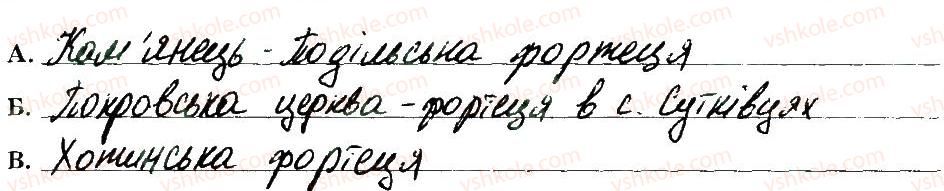 А. Кам'янець-Подільська фортеця
Б. Покровська церква-фортеця в с. Сутківцях
В. Хотинська фортеця